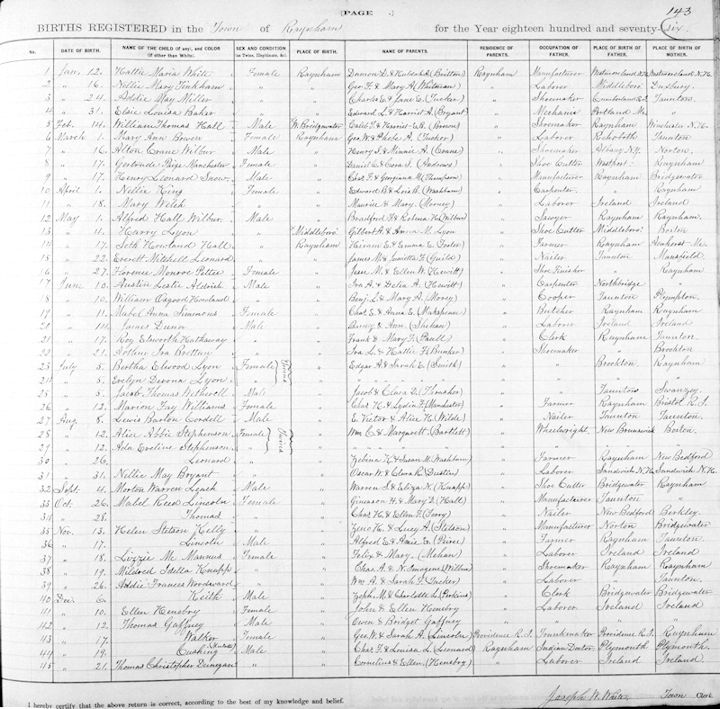 [PAGE 143
BIRTHS REGISTERED in the Town of Raynham for the Year eighteen hundred and seventy-six
No. DATE OF BIRTH. NAME OF THE CHILD (if any), and COLOR (if other than White). SEX AND CONDITION (as Twins, Illegitimate, &c.) PLACE OF BIRTH. NAME OF PARENTS. RESIDENCE OF PARENTS. OCCUPATION OF FATHER. PLACE OF BIRTH OF FATHER. PLACE OF BIRTH OF MOTHER.
1 Jan. 12. Hattie Maria White Female Raynham Raynham Manufacturer
2 " 16. Nellie Mary Tinkham " " Geo. F. & Mary H. " Laborer Middleboro' Duxbury.
3 " 24. Addie May Miller " " Charles E & Jane E. (Tucker) " Shoemaker Taunton.
4 " 31. Elsie Louisa Baker " " Edward L & Harriet A. (Bryant) " Mechanic Portland Me. "
5 Feb. 14. William Thomas Hall Male W. Bridgewater " Shoemaker Raynham
6 March 9. Mary Ann Bowen Female Raynham Geo. W. & Phebe A. (Tucker) " Laborer Rehoboth Taunton
7 " 16. Alton Evans Wilbur Male " Henry S & Minnie A. (Evans) " Shoemaker Albany N.Y. Norton.
8 " 17. Gertrude Paige Manchester Female " Daniel E & Cora S. (Andrews) " Shoe Cutter Westport Raynham
9 " 17. Henry Leonard Snow. Male " Chas. F & Georgiana M. (Thompson) " Manufacturer Raynham Bridgewater
10 April 1. Nellie King Female " Edward B & Lois B. (Washburn) " Carpenter. " Raynham
11 " 18. Mary Welch " " Maurice & Mary (Money) " Laborer Ireland Ireland
12 May 1. Alfred Hall Wilbur Male " Bradford F & (Wilbur) " Sawyer Raynham Raynham.
13 " 11. Harry Lyon " Middleboro' Gilbert A. & Anna M. Lyon " Shoe Cutter Middleboro' Boston
14 " 17. Seth Howland Hall " Raynham Hiram E & Emma E. (Foster) " Farmer Raynham Amherst Me.
15 " 22. Everett Mitchell Leonard " " James M & (Guild) " Nailer Taunton Mansfield.
16 " 27. Florence Monroe Pettee Female " Jesse M. & Ellen W. (Hewitt) " Shoe Finisher " Raynham
17 June 10. Austin Leslie Aldrich Male " Ira A. & Delia A. (Hewitt) " Carpenter Northbridge "
18 " 10. William Osgood Howland " " Benj. L & Mary A. (Morey) " Cooper Taunton Plympton.
19 " 11. Mabel Anna Simmons Female " Chas. E & Anna E. (Makepeace) " Butcher Raynham Raynham
20 " James Dunn Male " & Ann. " Laborer Ireland Ireland
21 " 17. Roy Elsworth Hathaway " " Frank & Mary F. " Clerk Raynham Taunton.
22 " 21. Arthur Ira Brettun " " Ira L. & Hattie F. (Bunker) " Shoemaker " Brockton
23 July 5. Bertha Elwood Lyon Female Twins " Edgar A & Sarah E. (Smith) " " Brockton Raynham.
24 " 5. Evelyn Lyon " " " " " "
25 " 5. Jacob Thomas Witherell Male " Jacob & Clara D. (Thrasher) " " Taunton Swanzey.
26 " 12. Marion Fay Williams Female " Chas. H & Lydia F. (Manchester) " Farmer Raynham Bristol R.I.
27 Aug. 8. Lewis Barton Cordell Male " E. Victor & Alice H. (Wilde) " Nailer Taunton Taunton.
28 " 12. Alice Abbie Stephenson Female Twins " Wm. C & Margarett. (Bartlett) " Wheelwright New Brunswick Boston.
29 " 12. Ada Eveline Stephenson " " " " " "
30 " 26. Leonard " " Zebina K & Susan M. Washburn " Farmer Raynham New Bedford
31 " 31. Nellie May Bryant " " Oscar W. & Clara R. (Dustin) " Laborer Sandwich N.H. Sandwich N.H.
32 Sept. 4. Morton Warren Leach Male " Warren S. & Eliza N. (Knapp) " Shoe Cutter Bridgewater Raynham
33 Oct. 26. Mabel Reed Lincoln Female " Gideon H. & Mary D. (Hall) " Manufacturer Taunton "
34 " 28. Thomas " " Chas. H & Ellen F. (Terry) " Nailer New Bedford Berkley.
35 Nov. 13. Helen Stetson Kelly " " & Lucy A. (Stetson) " Manufacturer Norton Bridgewater
36 " 17. Lincoln Male " Alfred E & Amie E. (Peirce) " Farmer Raynham Taunton
37 " 18. Lizzie M. Manus Female " Felix & Mary. (Mehan) " Laborer Ireland Ireland
38 " 19. Mildred Idella Knapp " " Chas. A. & N. Imogene (Wilbur) " Shoemaker Raynham Raynham
39 " 26. Addie Frances Woodward " " Wm. A & Sarah F. Tucker) " Laborer " Taunton.
40 Dec. 6. Keith Male " Zeph. M & Charlotte L. (Perkins) " Clerk Bridgewater Bridgewater
41 " 10. Ellen Henebry Female " John & Ellen Henebry " Laborer Ireland Ireland
42 " 12. Thomas Gaffney Male " Owen & Bridget Gaffney " " " "
43 " 17. Walker Female " Geo. W. & Sarah A. (Lincoln) Providence R.I. Trunkmaker Providence R.I. Raynham
44 " 19. Cushing Male " Chas. F & Louisa L. (Leonard) Raynham Indian Doctor Plymouth Plymouth.
45 " 21. Thomas Christopher Dunegan " " Cornelius & Ellen. (Henebry) " Laborer Ireland Ireland.
I hereby certify that the above return is correct, according to the best of my knowledge and belief.
Joseph W. White, Town Clerk